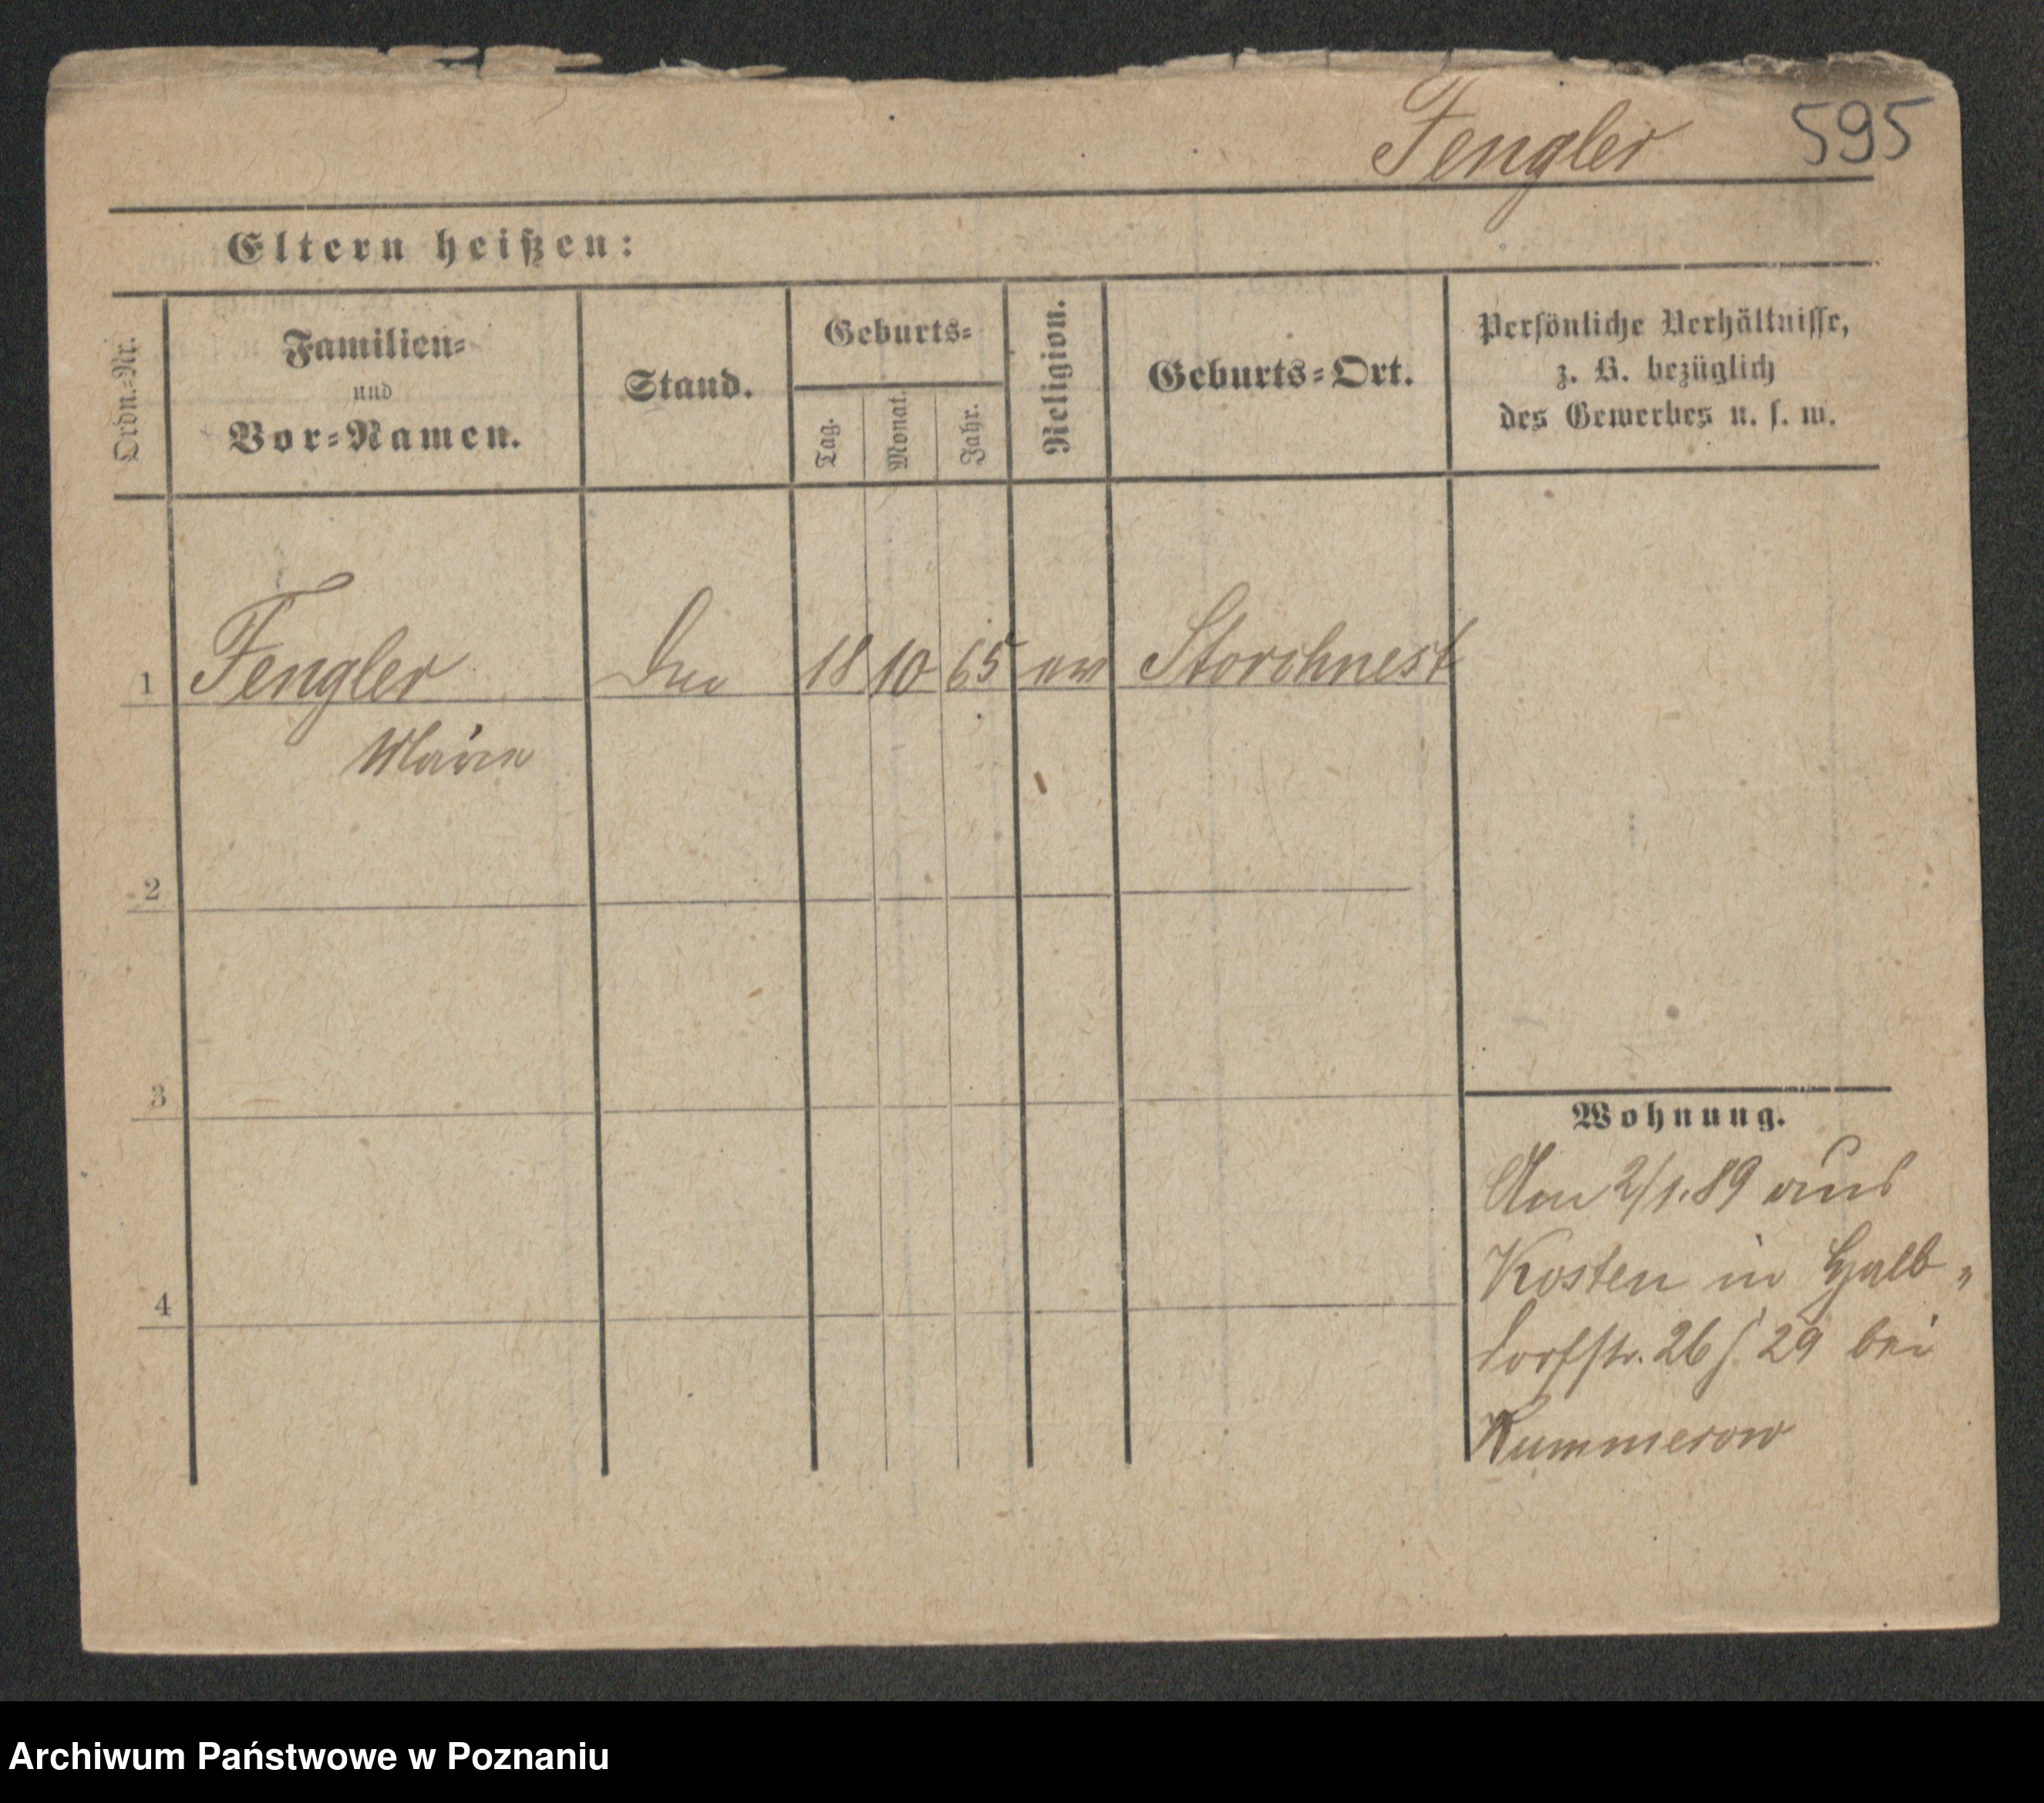 Fengler 595
Eltern heißen:
Ordn.=Nr.
Familien=
und
Vor=Namen.
Stand.
Geburts=
Tag.
Monat.
Jahr.
Religion.
Geburts=Ort.
Persönliche Verhältnisse,
z. B. bezüglich
des Gewerbes u. s. w.
1 Fengler 18 10 65 ev Storchnest
Marie
2
3
4
Wohnung.
Am 2/1.89 aus
Kosten in Halb„
dorfstr. 26/29 bei
Kummerow
Archiwum Państwowe w Poznaniu